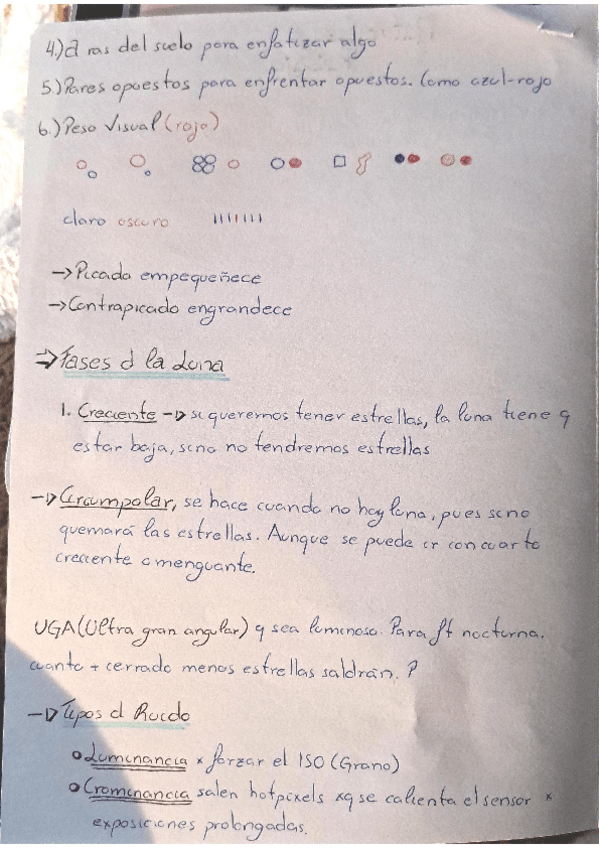 4.) A ras del suelo para enfatizar algo
5.) Pares opuestos para enfrentar opuestos. Como azul-rojo
6.) Peso Visual (rojo)
claro oscuro
→ Picado empequeñece
→ Contrapicado engrandece
⇒ Fases d la Luna
1. Creciente → si queremos tener estrellas, la luna tiene q
estar baja, sino no tendremos estrellas
→ Circumpolar, se hace cuando no hay luna, pues sino
quemará las estrellas. Aunque se puede ir con cuarto
creciente o menguante.
UGA (Ultra gran angular) q sea luminoso. Para ft nocturna.
cuanto + cerrado menos estrellas saldrán. ?
→ Tipos d Ruido
• Luminancia x forzar el ISO (Grano)
• Crominancia salen hotpixels xq se calienta el sensor x
exposiciones prolongadas.